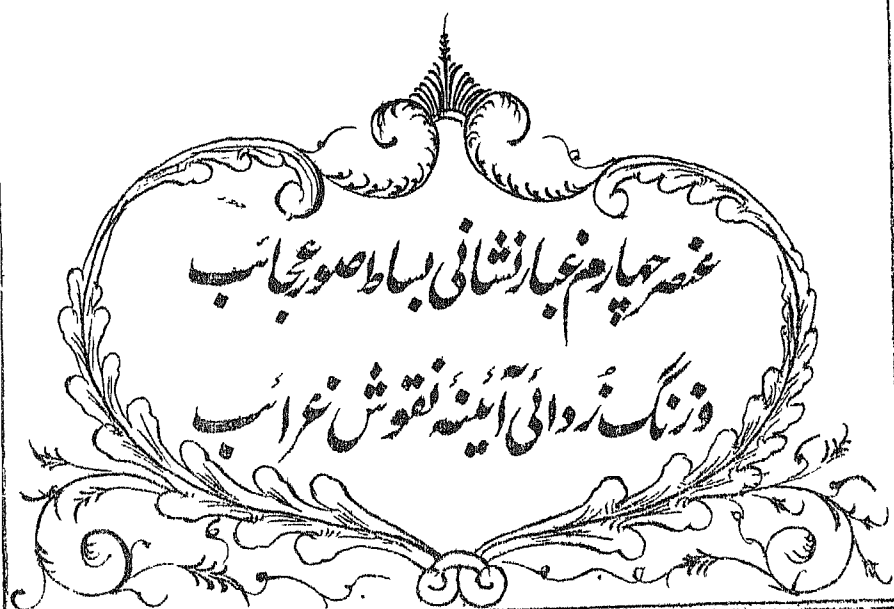 عنصر چهارم غبار نشانی بساط صور عجائب
و زنگ زُدائی آئینهٔ نقوش غرائب